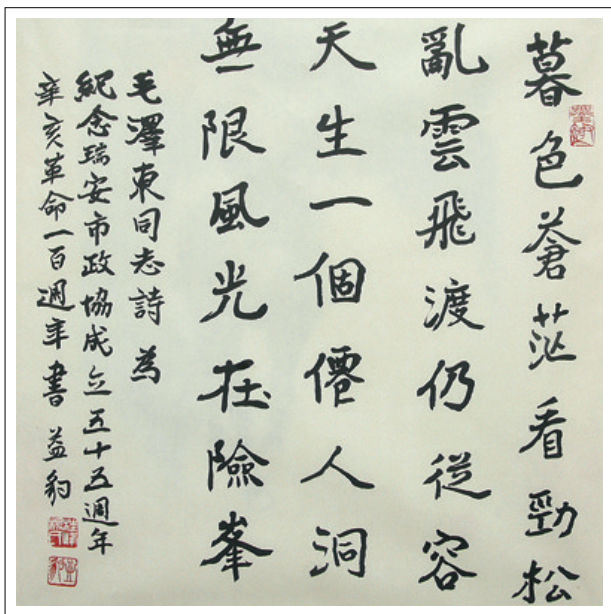 暮色蒼茫看勁松
亂雲飛渡仍從容
天生一個僊人洞
無限風光在險峯
毛澤東同志詩為
紀念瑞安市政協成立五十五週年
辛亥革命一百週年書益豹